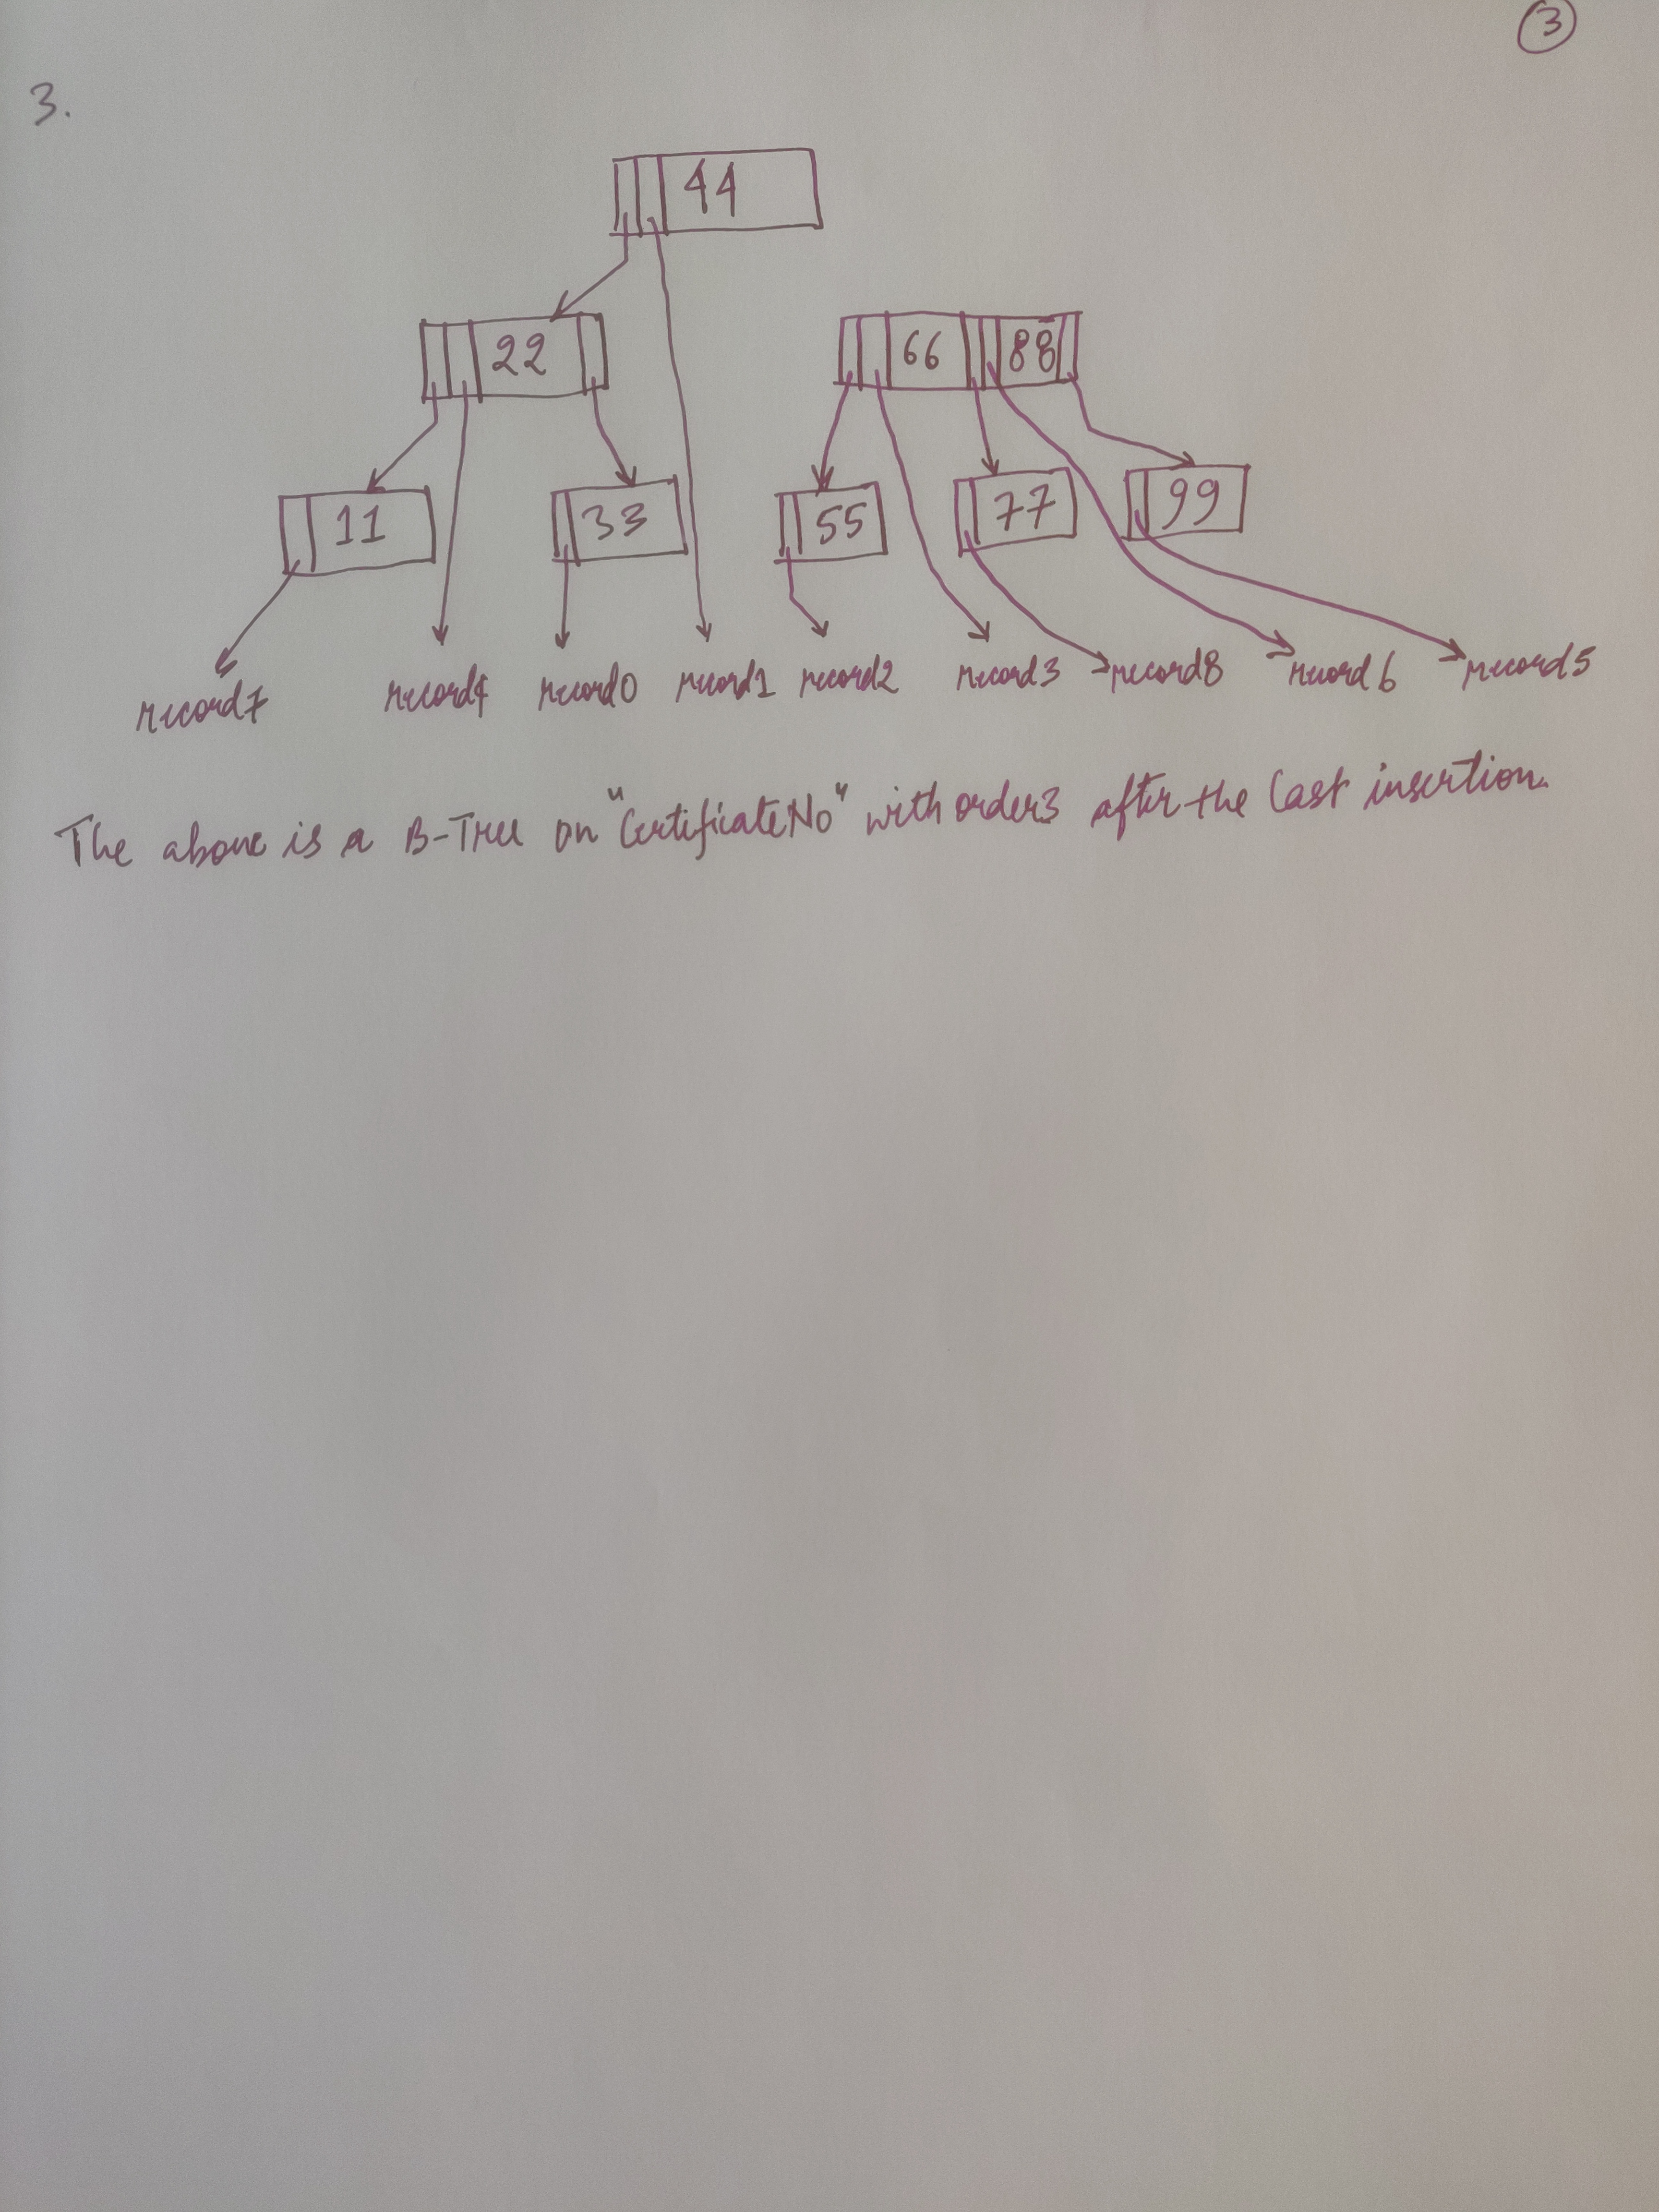 3
3.
44
22 66 88
11 33 55 77 99
record7 record4 record0 record1 record2 record3 record8 record6 record5
The above is a B-Tree on "CertificateNo" with order3 after the last insertion.